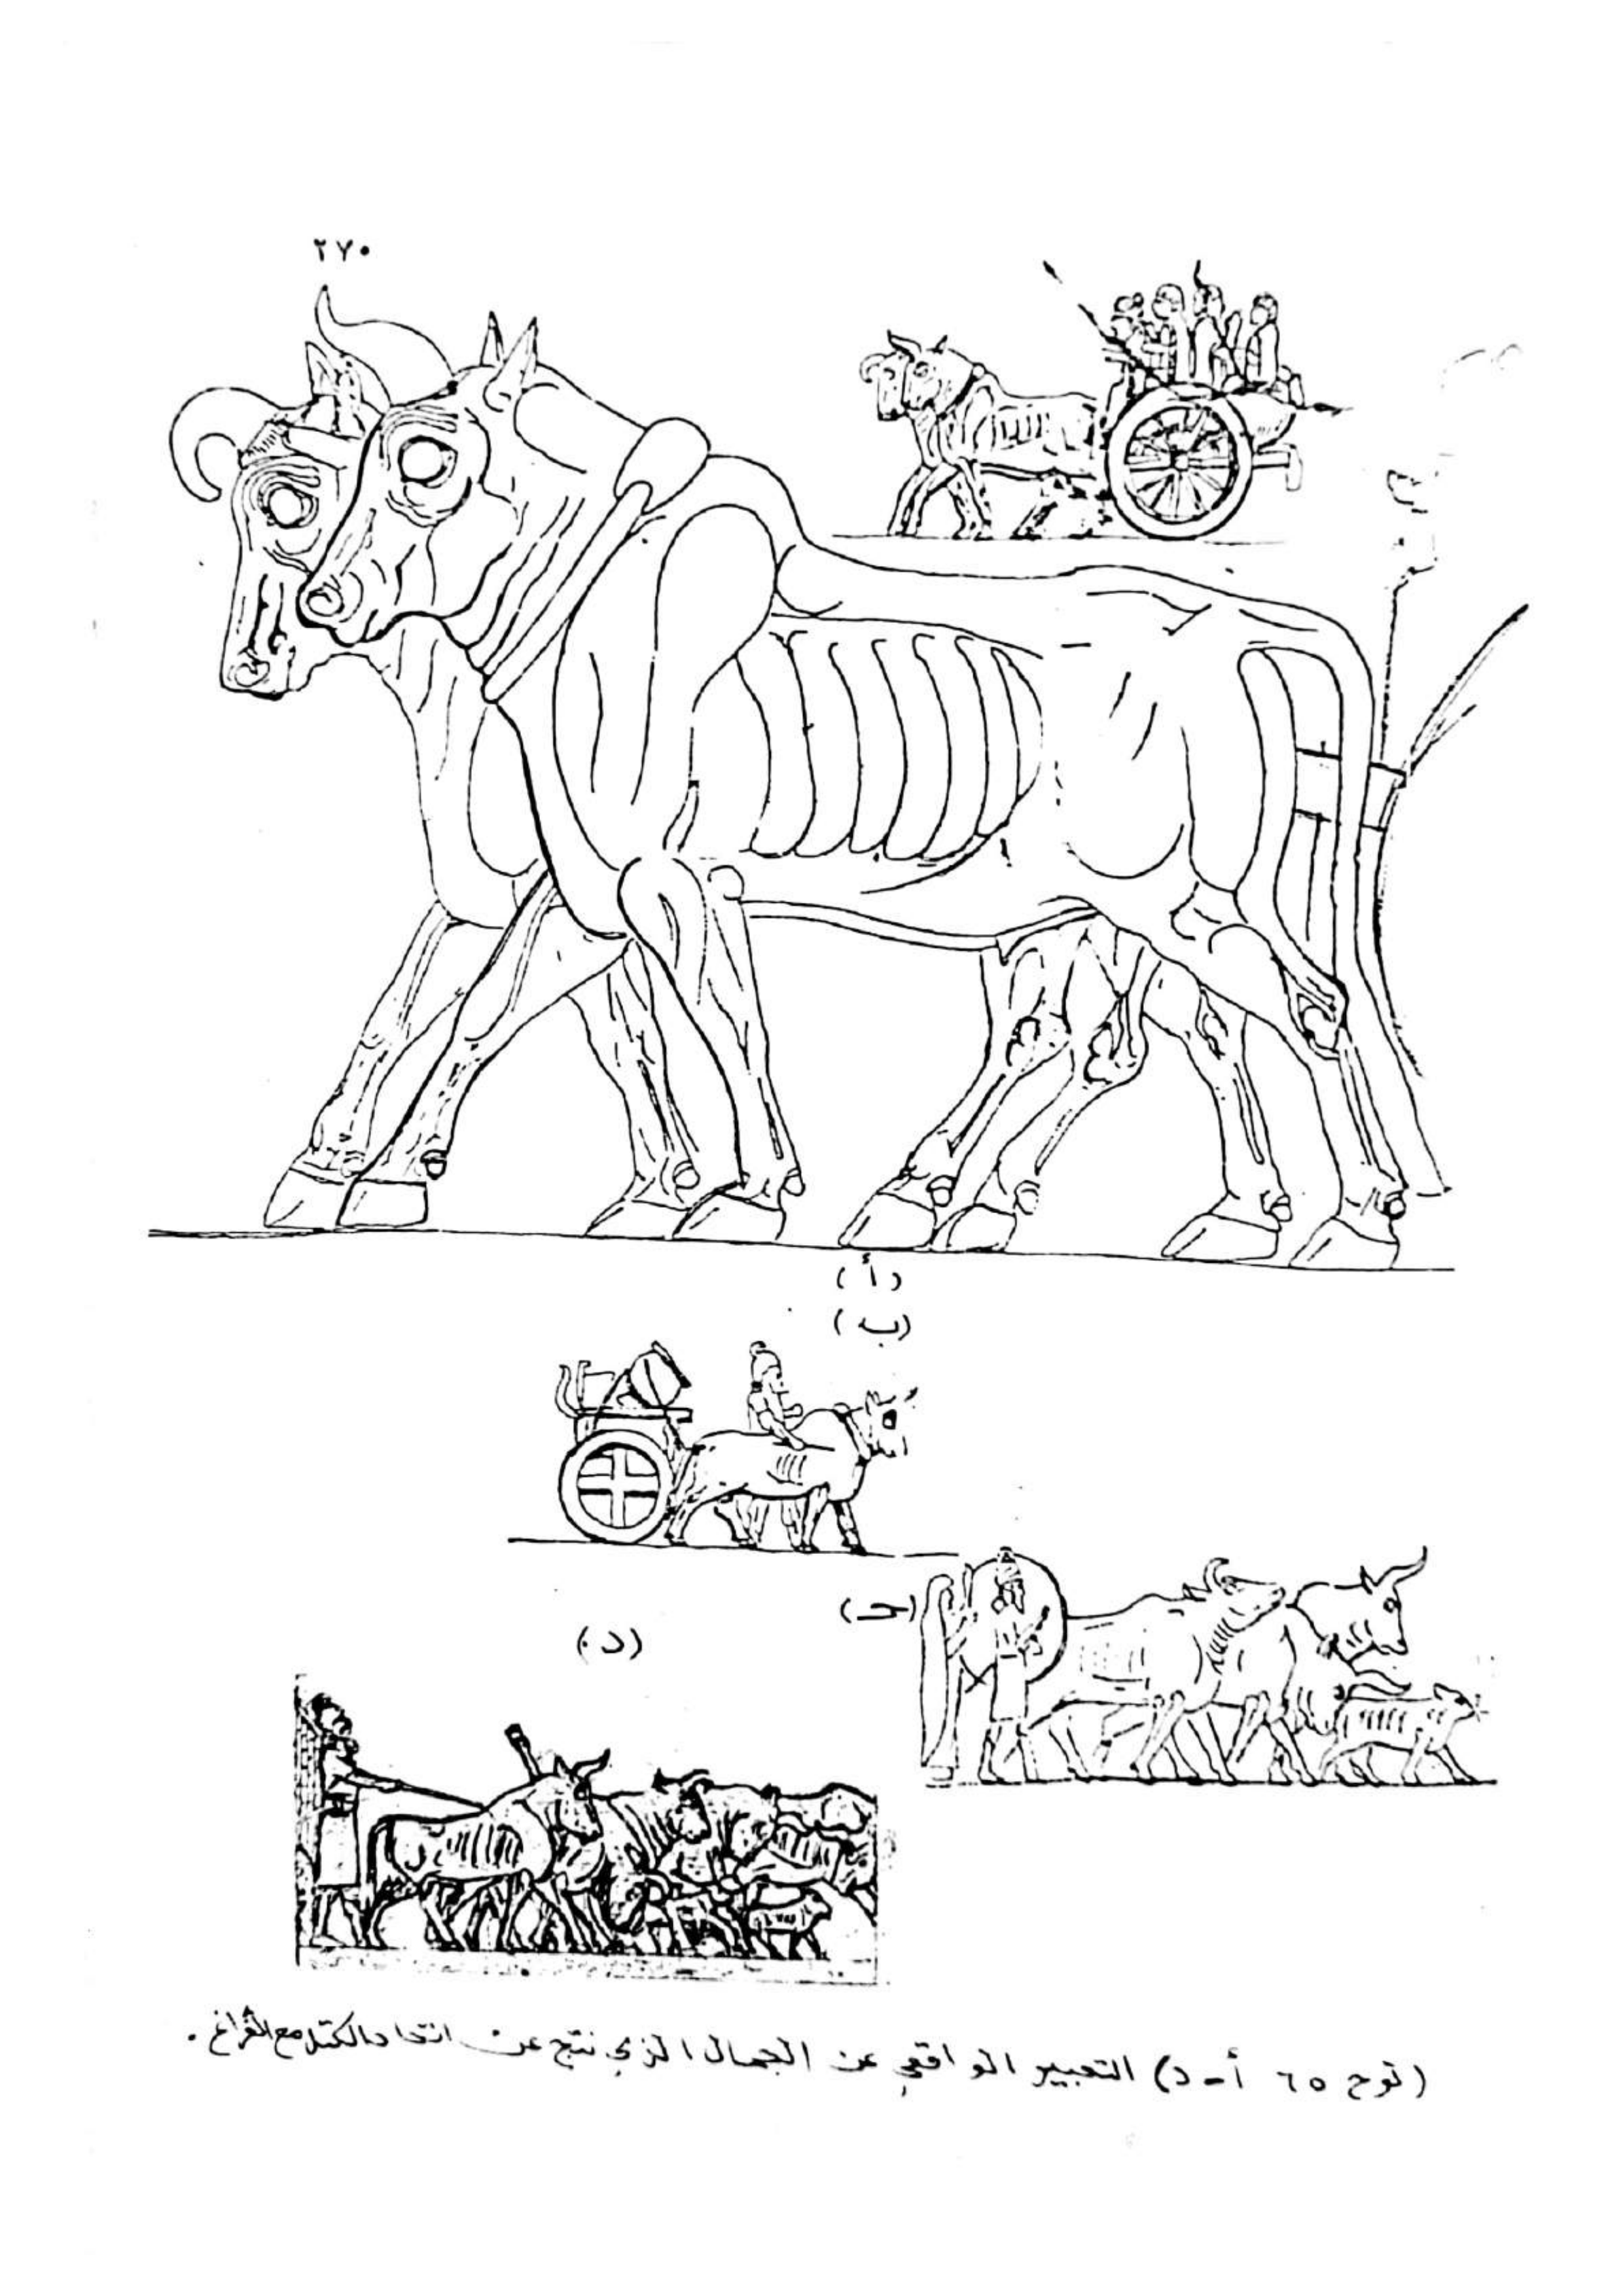 ٢٧٠
(أ)
(ب)
(جـ)
(د)
(لوح ٦٥ أ - د) التعبير الواقعي عن الجمال الذي نتج عن اتحاد الكتل مع الفراغ .